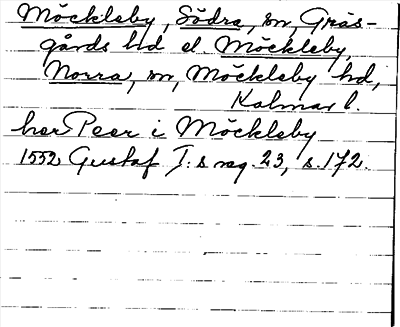 Möckleby, Södra, sn, Gräs-
gårds hd el Möckleby,
Norra, sn, Möckleby hd,
Kalmar l.
her Peer i Möckleby
1552 Gustaf I:s reg. 23, s. 172.